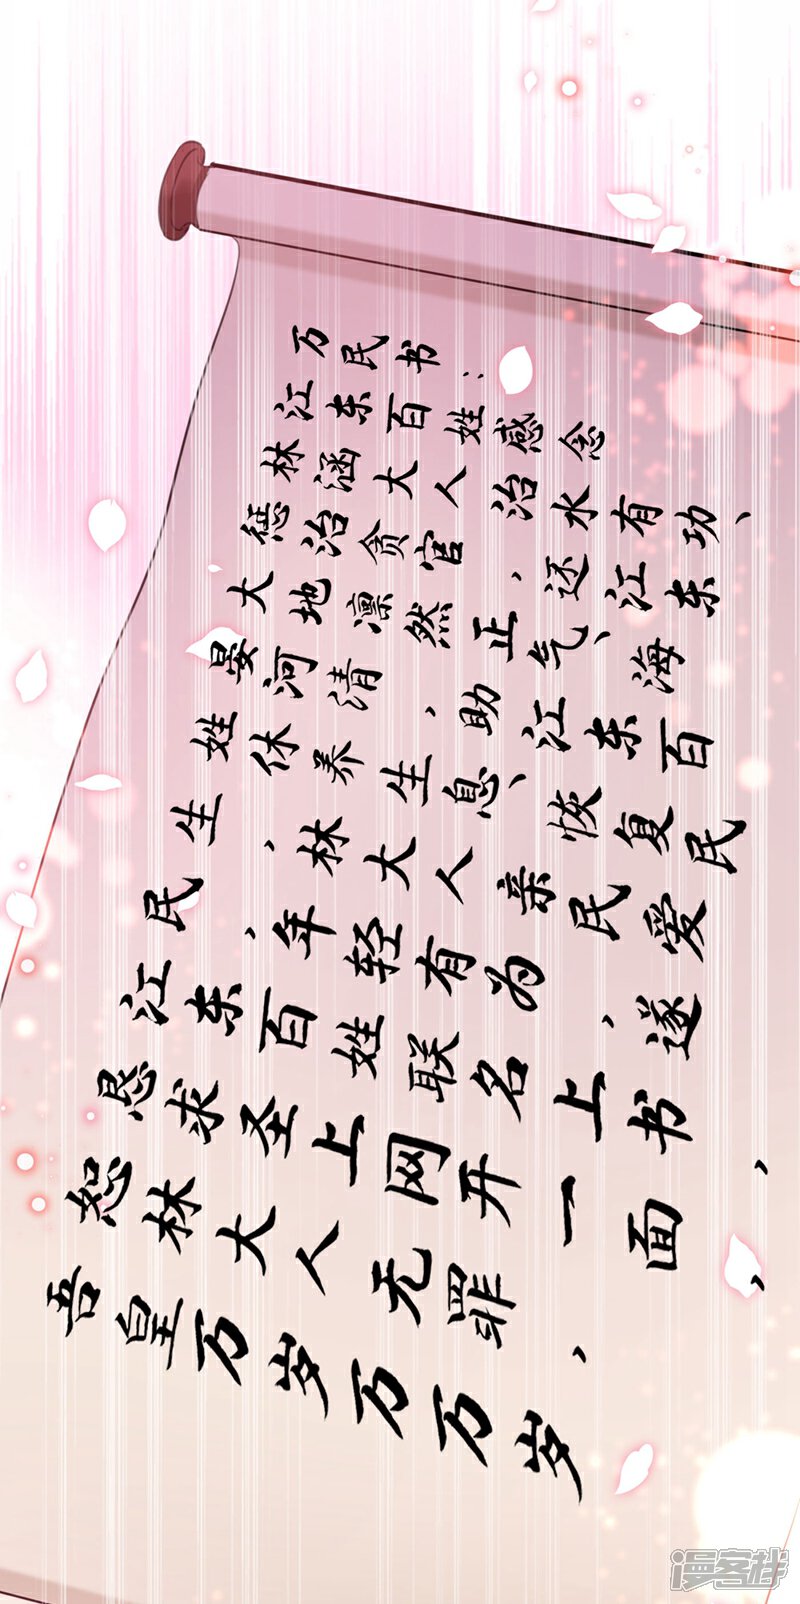 万民书：
江东百姓感念
林涵大人治水有功、
惩治贪官，还江东
大地凛然正气、海
晏河清，助江东百
姓休养生息、恢复民
生，林大人亲民爱
民，年轻有为，遂
江东百姓联名上书，
恳求圣上网开一面，
恕林大人无罪，
吾皇万岁万万岁
漫客栈